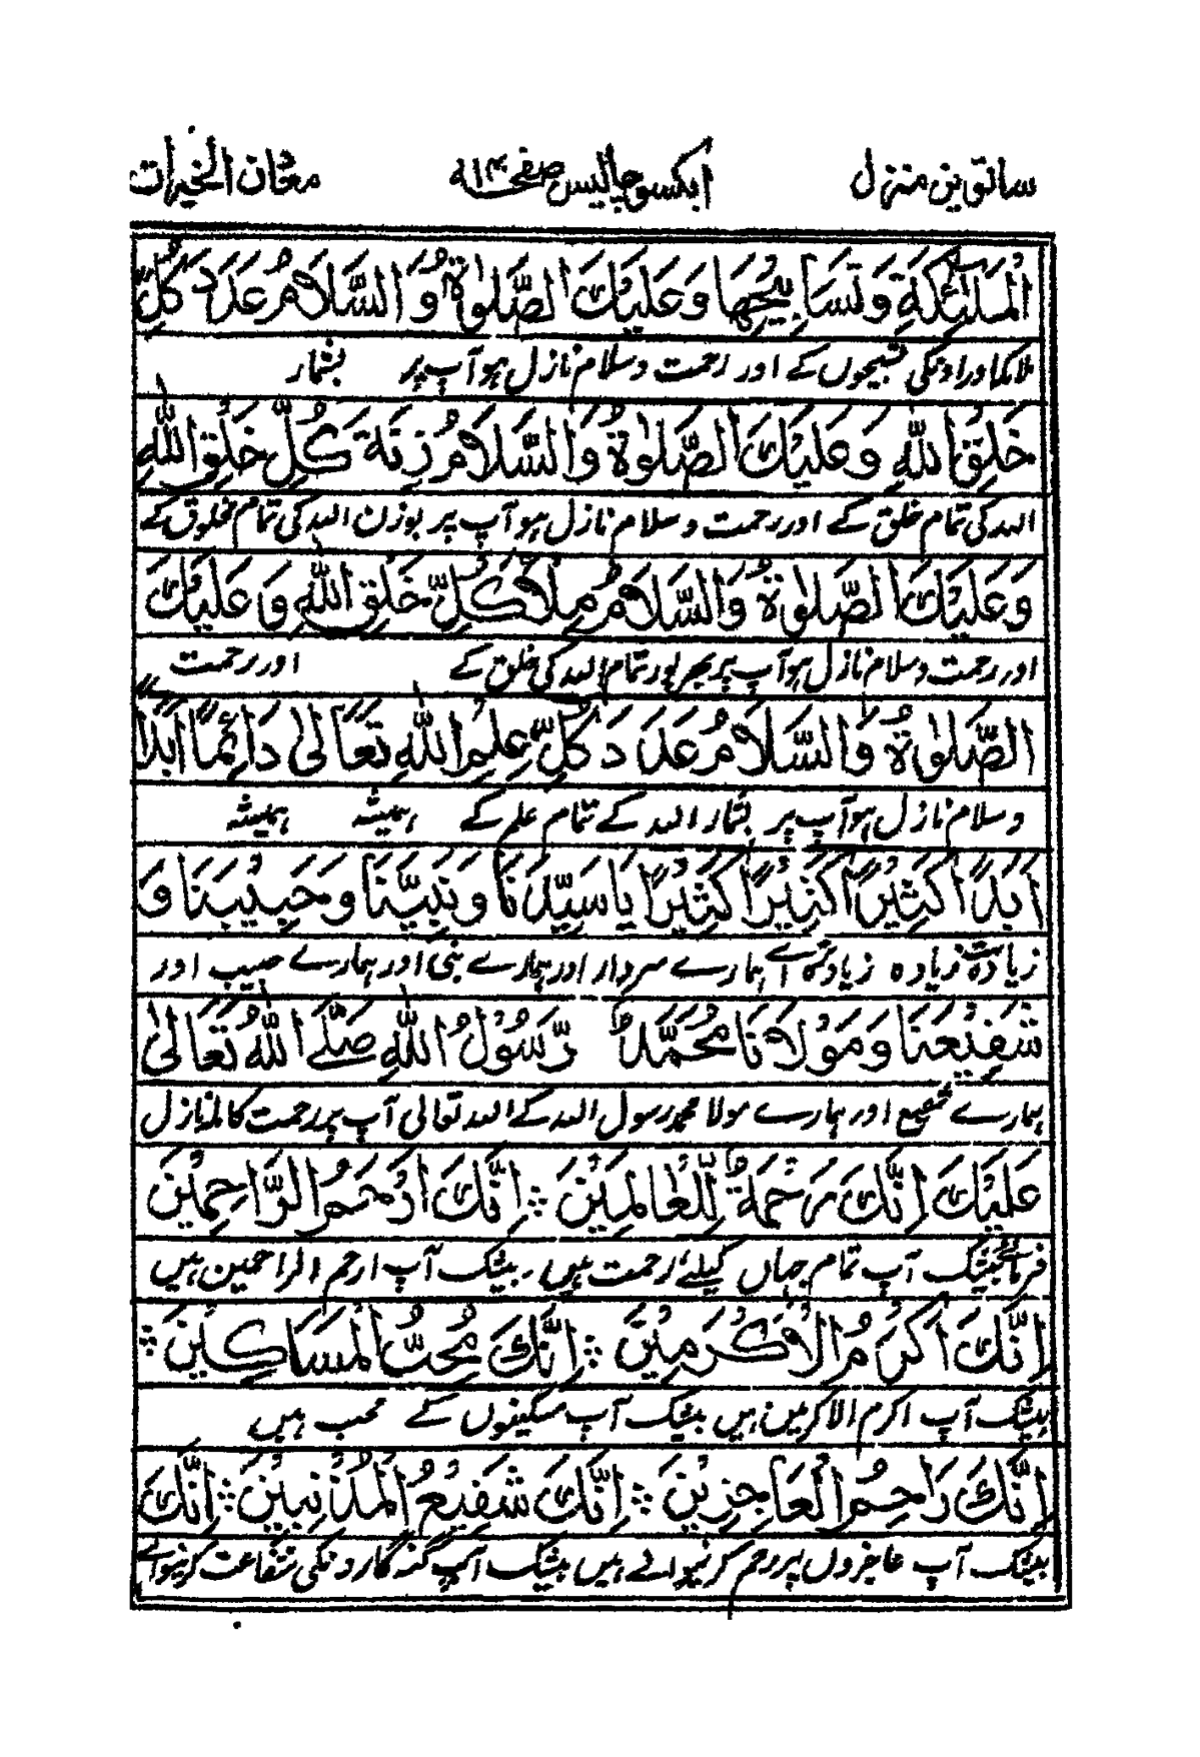 ساتویں منزل ایکسو چالیس صفحہ ۱۴۰ معدن الخیرات
الْمَلٰئِكَةِ وَتَسَابِيْحِهَا وَعَلَيْكَ الصَّلٰوةُ وَالسَّلَامُ عَدَدَ كُلِّ
ملائکہ اور انکی تسبیحوں کے اور رحمت و سلام نازل ہو آپ پر بشمار
خَلْقِ اللّٰهِ وَعَلَيْكَ الصَّلٰوةُ وَالسَّلَامُ زِنَةَ كُلِّ خَلْقِ اللّٰهِ
اللہ کی تمام خلق کے اور رحمت و سلام نازل ہو آپ پر بوزن اللہ کی تمام مخلوق کے
وَعَلَيْكَ الصَّلٰوةُ وَالسَّلَامُ مِلْأَ كُلِّ خَلْقِ اللّٰهِ وَعَلَيْكَ
اور رحمت و سلام نازل ہو آپ پر بھرپور تمام اللہ کی خلق کے اور رحمت
الصَّلٰوةُ وَالسَّلَامُ عَدَدَ كُلِّ عِلْمِ اللّٰهِ تَعَالٰى دَائِمًا أَبَدًا
و سلام نازل ہو آپ پر بشمار اللہ کے تمام علم کے ہمیشہ ہمیشہ
أَبَدًا كَثِيْرًا كَثِيْرًا كَثِيْرًا يَا سَيِّدَنَا وَنَبِيَّنَا وَحَبِيْبَنَا وَ
زیادہ زیادہ زیادہ اے ہمارے سردار اور ہمارے نبی اور ہمارے حبیب اور
شَفِيْعَنَا وَمَوْلَانَا مُحَمَّدٌ رَّسُوْلُ اللّٰهِ صَلَّے اللّٰهُ تَعَالٰى
ہمارے شفیع اور ہمارے مولا محمد رسول اللہ کے اللہ تعالی آپ پر رحمت کاملہ نازل
عَلَيْكَ اِنَّكَ رَحْمَةٌ لِّلْعَالَمِيْنَ ؞ اِنَّكَ اَرْحَمُ الرَّاحِمِيْنَ
فرمائے بیشک آپ تمام جہاں کیلئے رحمت ہیں۔ بیشک آپ ارحم الراحمین ہیں
اِنَّكَ اَكْرَمُ الْاَكْرَمِيْنَ ؞ اِنَّكَ مُحِبُّ الْمَسَاكِيْنَ ؞
بیشک آپ اکرم الاکرمین ہیں بیشک آپ مسکینوں کے محب ہیں
اِنَّكَ رَاحِمُ الْعَاجِزِيْنَ ؞ اِنَّكَ شَفِيْعُ الْمُذْنِبِيْنَ ؞ اِنَّكَ
بیشک آپ عاجزوں پر رحم کرنیوالے ہیں بیشک آپ گنہگاروں کی شفاعت کرنیوالے